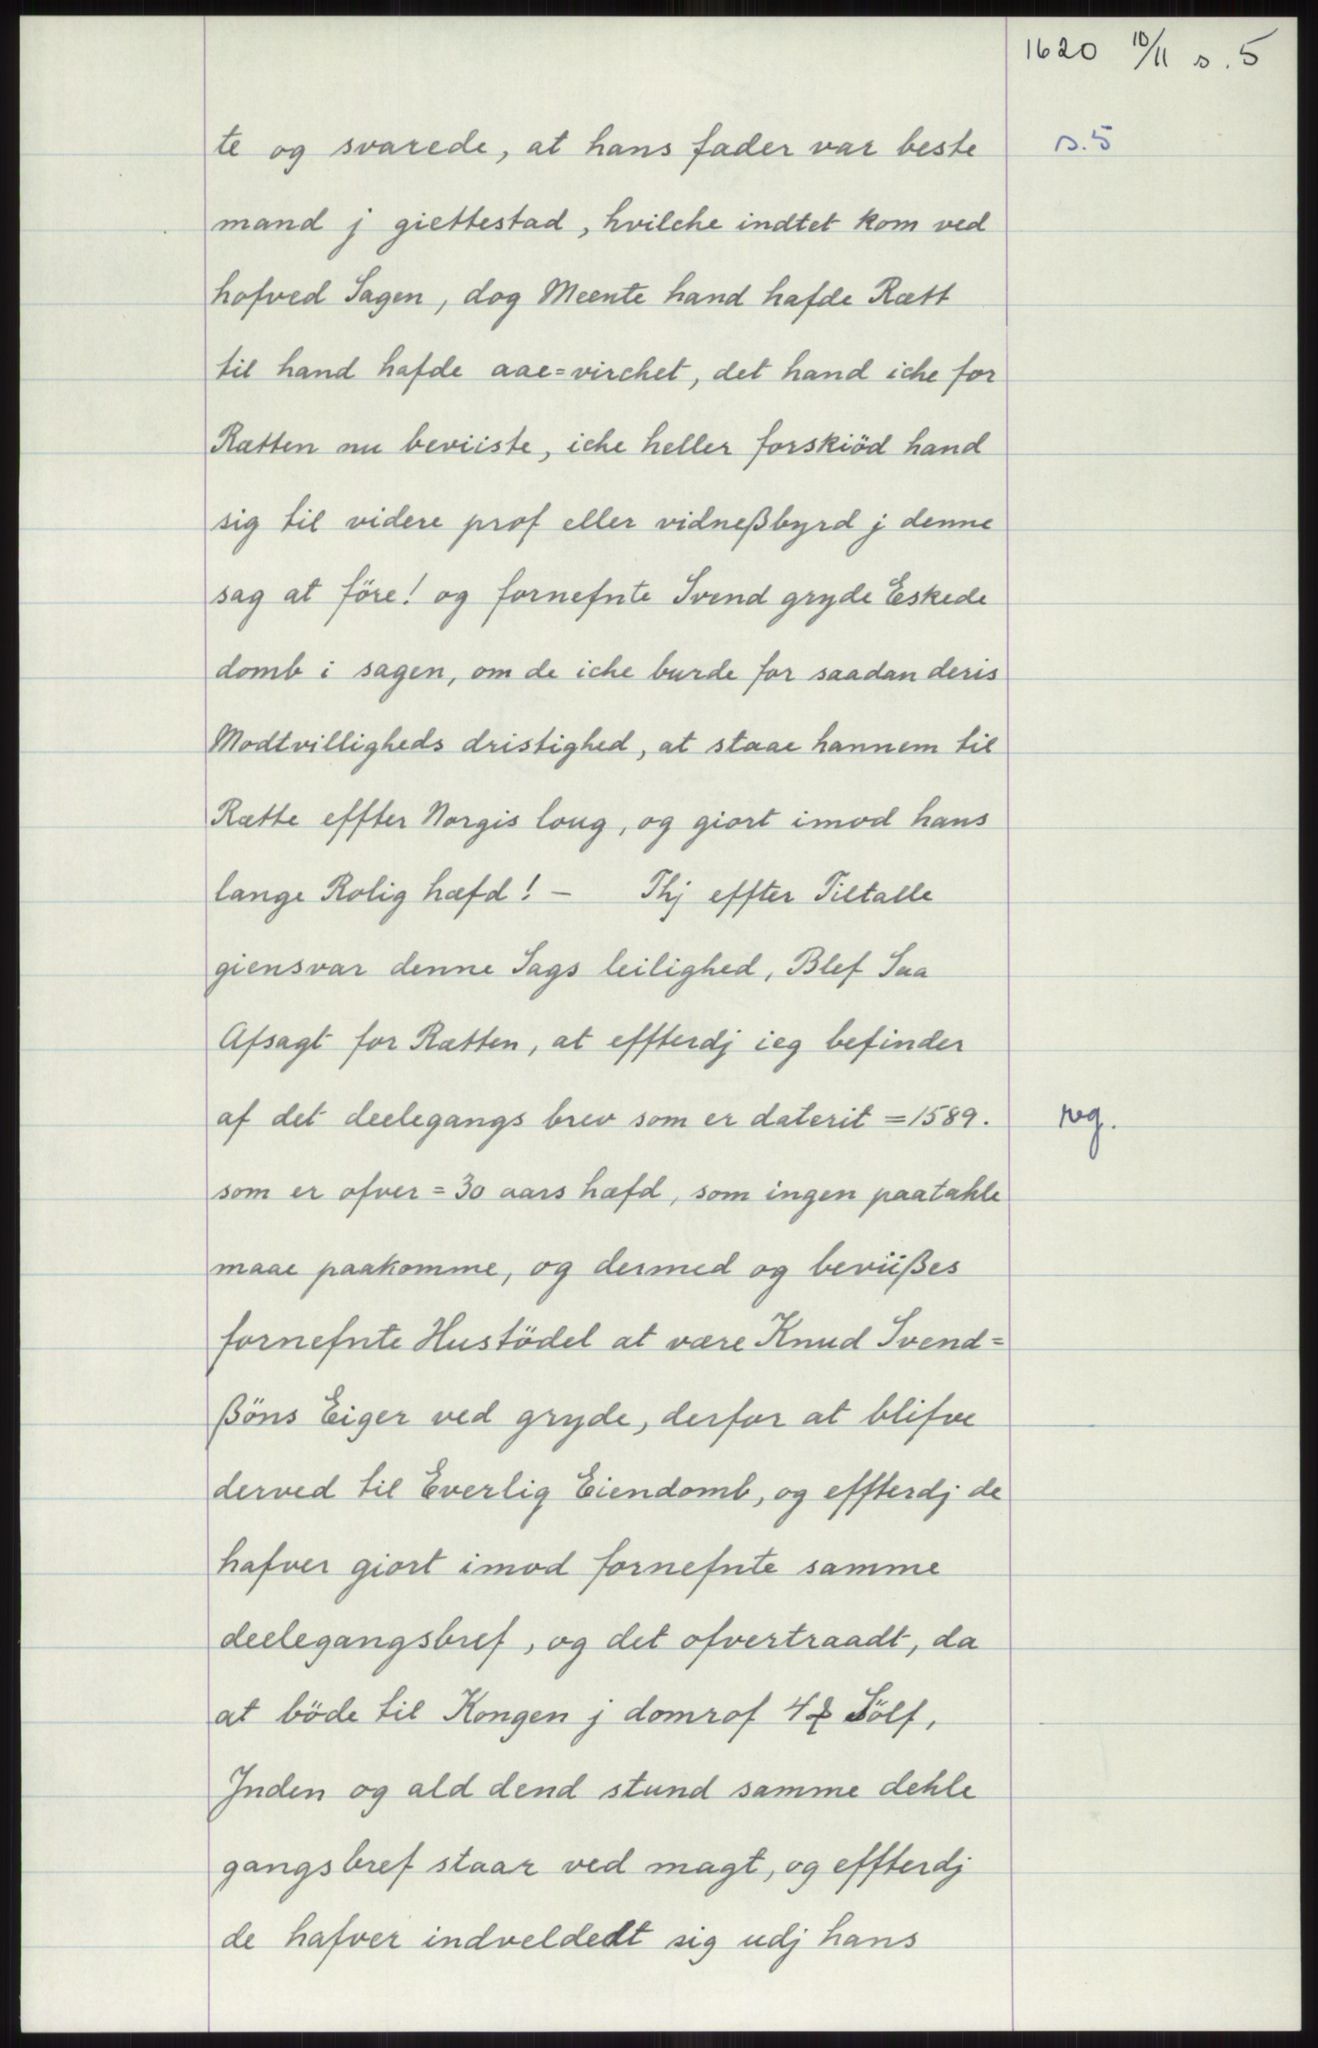 1620 10/11 s. 5
te og svarede, at hans fader var beste
s. 5
mand j giettestad, hvilche indtet kom ved
hofved Sagen, dog Meente hand hafde Rætt
til hand hafde aae=virchet, det hand iche for
Rætten nu beviiste, iche heller forskiöd hand
sig til videre prof eller vidneßbyrd j denne
sag at före! og fornefnte Svend gryde Eskede
domb i sagen, om de iche burde for saadan deris
Modtvilligheds dristighed, at staae hannem til
Rætte effter Norgis loug, og giort imod hans
lange Rolig hæfd! — Thj effter Tiltalle
giensvar denne Sags leilighed, Blef Saa
Afsagt for Rætten, at effterdj ieg befinder
af det deelegangs brev som er daterit = 1589.
reg.
som er ofver = 30 aars hæfd, som ingen paatahle
maae paakomme, og dermed og beviißes
fornefnte Hustödel at være Knud Svend=
ßöns Eiger ved gryde, derfor at blifve
derved til Everlig Eiendomb, og effterdj de
hafver giort imod fornefnte samme
deelegangsbref, og det ofvertraadt, da
at böde til Kongen j domrof 4 Sölf,
Jnden og ald dend stund samme dehle
gangsbref staar ved magt, og effterdj
de hafver indveldedt sig udj hans